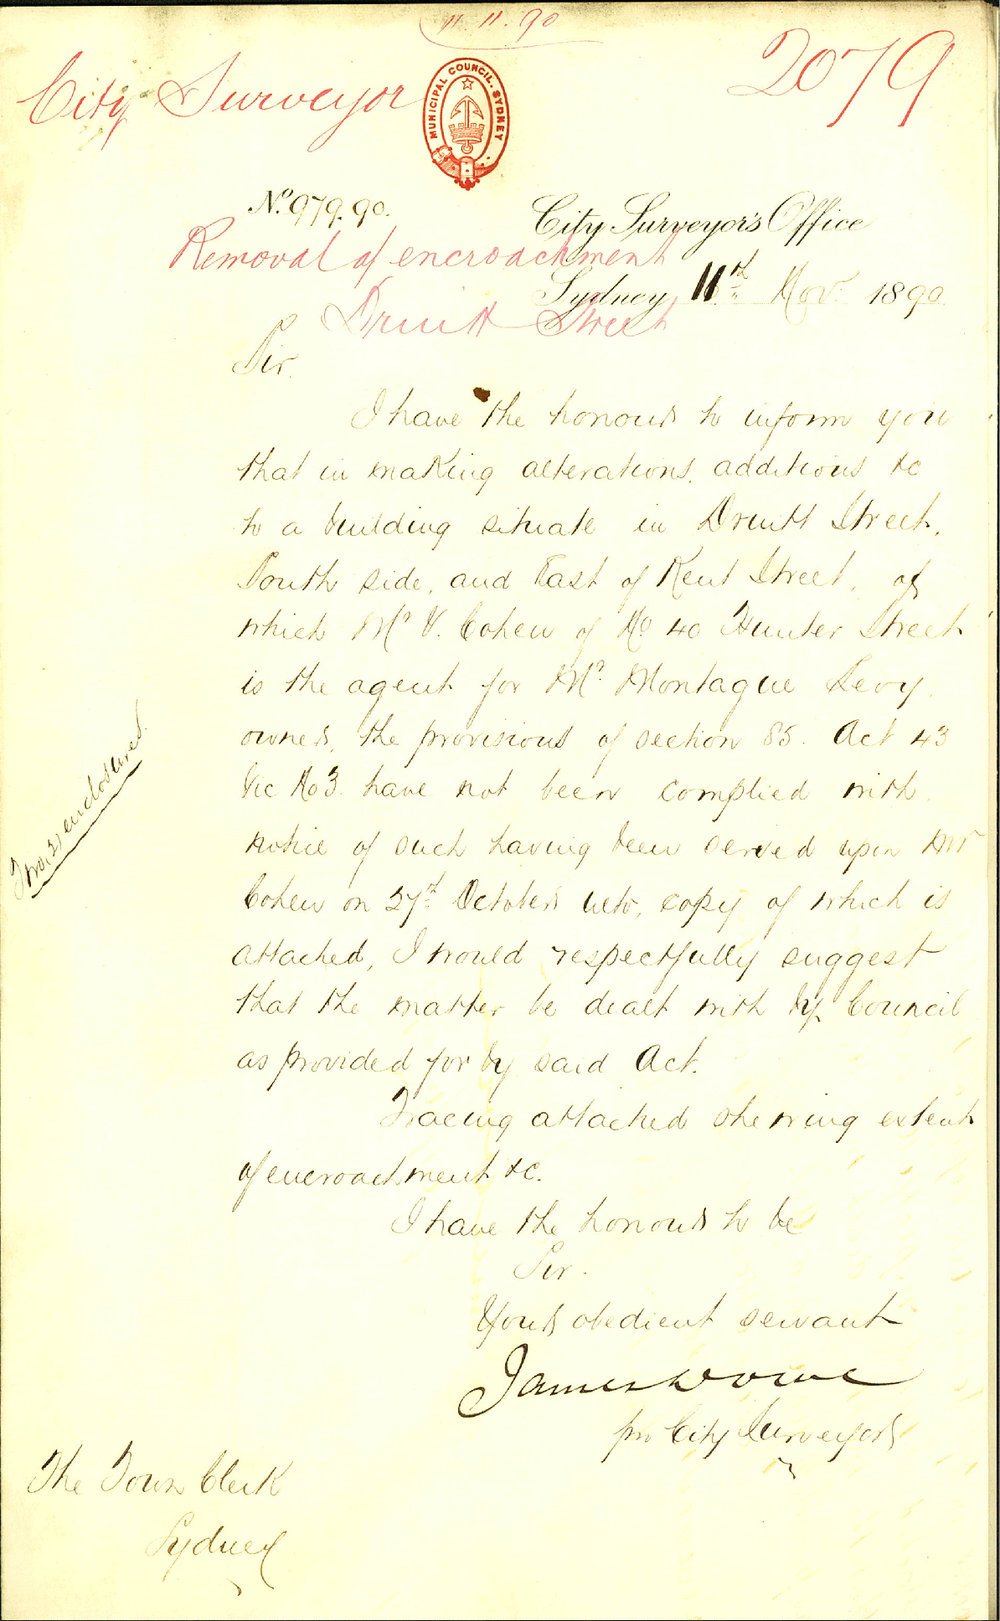 11. 11. 90
City Surveyor
2079
MUNICIPAL COUNCIL. SYDNEY
No. 979.90.
City Surveyor's Office
Removal of encroachment
Sydney 11th Nov. 1890
Druitt Street
Sir.
I have the honour to inform you
that in making alterations, additions &c
to a building situate in Druitt Street,
South side, and East of Kent Street, of
which Mr. V. Cohen of No 40 Hunter Street
is the agent for Mr. Montague Levy,
owner, the provisions of section 85. Act 43
Vic No 3 have not been complied with
notice of such having been served upon Mr
Cohen on 27th October ulto, copy of which is
attached, I would respectfully suggest
that the matter be dealt with by Council
as provided for by said Act.
Tracing attached shewing extent
of encroachment &c.
I have the honour to be
Sir.
Your obedient servant
James
pro City Surveyor
Two (2) enclosures.
The Town Clerk
Sydney